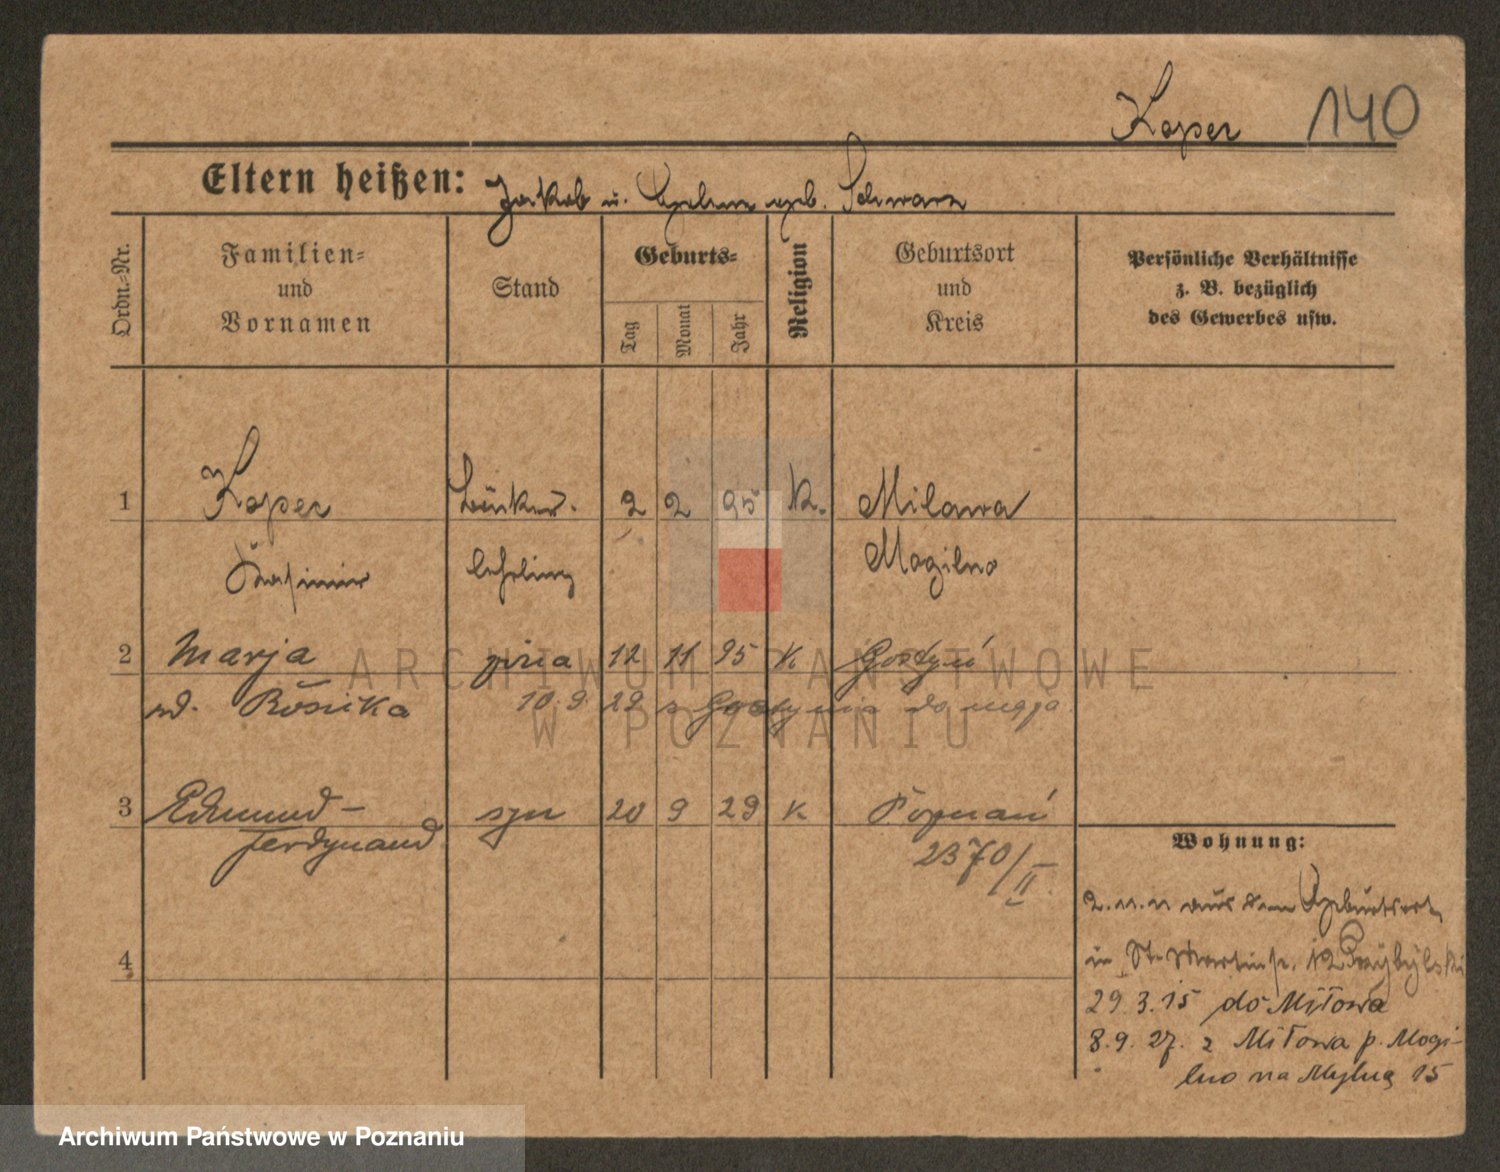 Koper 140
Eltern heißen: Jakob u. geb. Schwarz
Ordn.-Nr.
Familien-
und
Vornamen
Stand
Geburts-
Tag
Monat
Jahr
Religion
Geburtsort
und
Kreis
Persönliche Verhältnisse
z. B. bezüglich
des Gewerbes usw.
1 Koper 2 2 95 K. Milawa
Kasimir lehrling Mogilno
2 Marja 12 11 95 K Gostyń
10.9.29 z Gostynia do męża
3 Edmund- syn 20 9 29 K Poznań
Ferdynand 2370/II
Wohnung:
2.11.11 aus dem Geburtsort
in St. Martinstr. 12 Przybylski
29.3.15 do Miłowa
8.9.27. z Miłowa p. Mogi-
lno na Mylną 15
4
ARCHIWUM PAŃSTWOWE
W POZNANIU
Archiwum Państwowe w Poznaniu